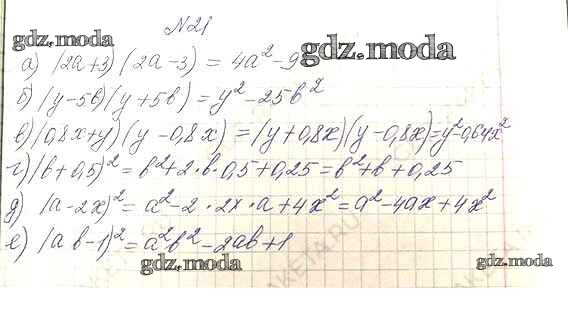 №21
gdz.moda
gdz.moda
а) (2a+3)(2a-3) = 4a²-9
б) (y-5b)(y+5b) = y²-25b²
в) (0,8x+y)(y-0,8x) = (y+0,8x)(y-0,8x)=y²-0,64x²
г) (b+0,5)² = b²+2·b·0,5+0,25=b²+b+0,25
д) (a-2x)² = a²-2·2x·a+4x²=a²-4ax+4x²
е) (ab-1)²=a²b²-2ab+1
gdz.moda
gdz.moda